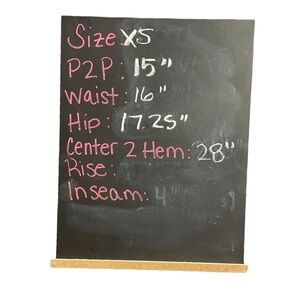 Size XS
P2P: 15"
Waist: 16"
Hip: 17.25"
Center 2 Hem: 28"
Rise:
Inseam: